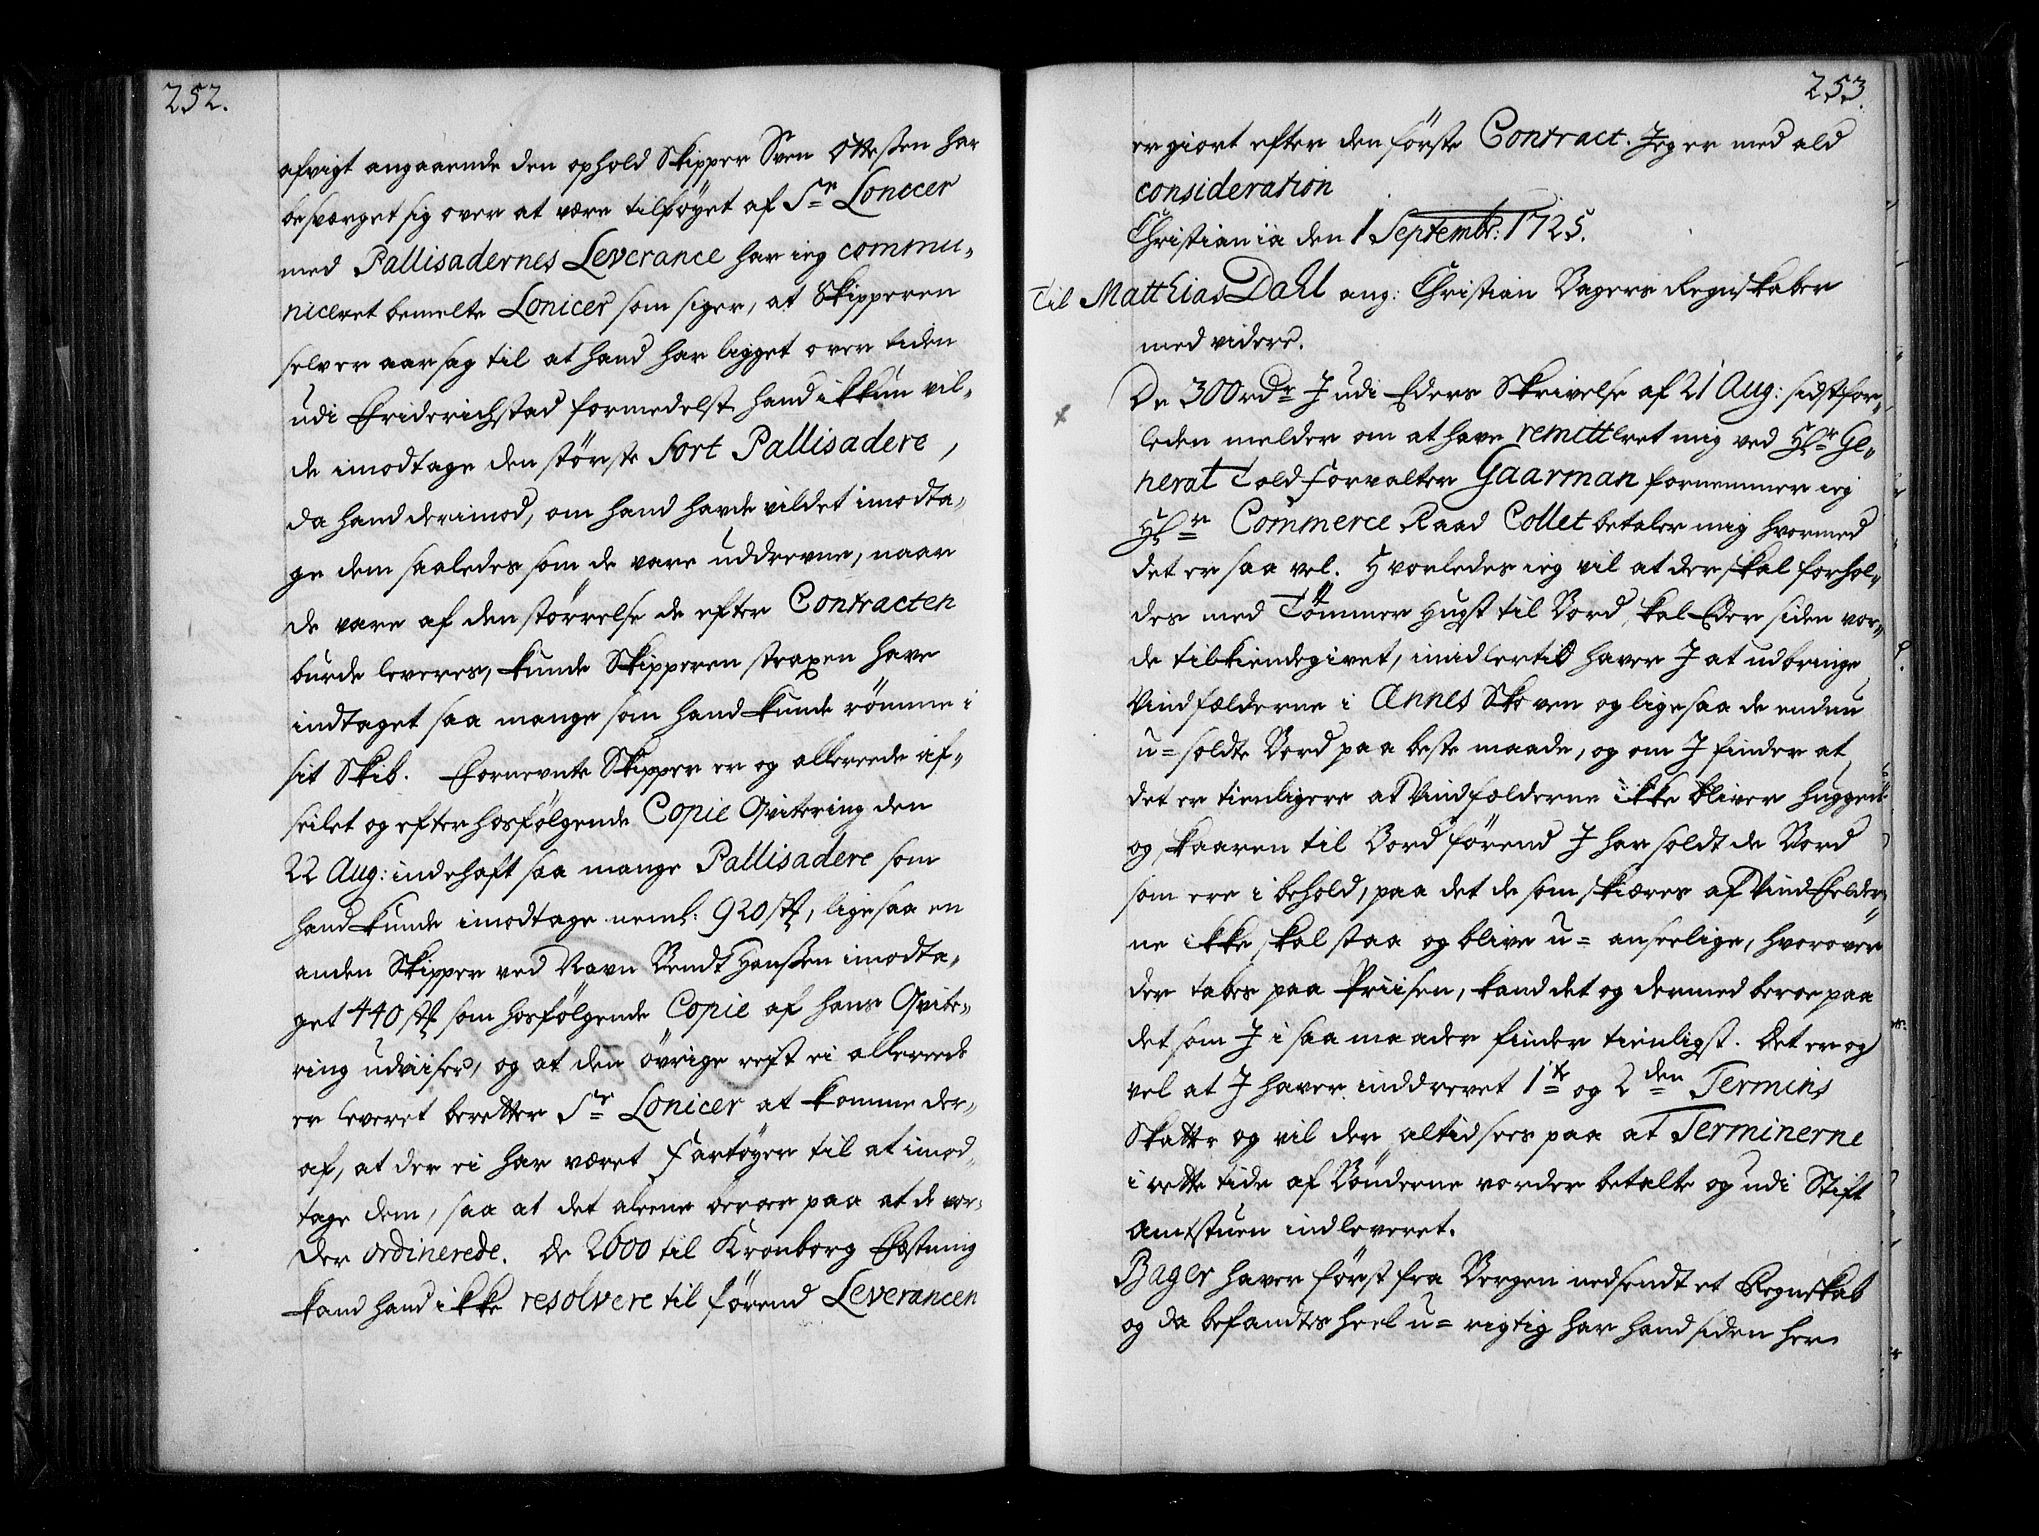 252.
afvigt angaaende den ophold Skipper Sven Ottesen har
besværget sig over at være tilföyet af Sr Lonicer
med Pallisadernes Leverance har ieg commu-
niceret bemelte Lonicer som siger, at Skipperen
selv er aarsag til at hand har ligget over tiden
udi Friderichstad formedelst hand ikkun vil-
de imodtage den störste Sort Pallisadere,
da hand derimod, om hand havde vildet imodta-
ge dem saaledes som de vare uddrevne, naar
de vare af den störrelse de efter Contracten
burde leveres, kunde Skipperen straxen have
indtaget saa mange som hand kunde römme i
sit Skib. Fornevnte Skipper er og allereede af-
seilet og efter hosfölgende Copie Qvitering den
22 Aug: indehaft saa mange Pallisadere som
hand kunde imodtage neml: 920 st, ligesaa en
anden Skipper ved Navn Bendt Hansen imodta-
get 440 st som hosfölgende Copie af hans Qvite-
ring udviiser, og at den övrige rest ei allereede
er leveret beretter Sr Lonicer at komme der-
af, at der ei har været Fartöyer til at imod-
tage dem, saa at det aleene beroer paa at de vor-
der ordinerede. De 2600 til Kronborg Fæstning
kand hand ikke resolvere til förend Leverancen
253.
er giort efter den förste Contract. Jeg er med ald
consideration
Christiania den 1 Septembr: 1725.
Til Matthias Dahl ang: Christian Bagers Regnskaber
med videre.
De 300 rdr J udi Eders Skrivelse af 21 Aug: sidstfor-
leden melder om at have remitteret mig ved Hr Ge-
neral Toldforvalter Gaarman fornemmer ieg
Hr Commerce Raad Collet betaler mig hvormed
det er saa vel. Hvorledes ieg vil at der skal forhol-
des med Tömmer Hugst til Bord skal Eder siden vor-
de tilkiendegivet, imidlertid haver J at udbringe
Vindfælderne i Annes Skoven og ligesaa de endnu
u-soldte Bord paa beste maade, og om J finder at
det er tienligere at Vindfælderne ikke bliver huggen
og skaaren til Bord förend J har soldt de Bord
som ere i behold, paa det de som skiæres af Vindfelder-
ne ikke skal staa og blive u-anseelige, hvorover
der tabes paa Priisen, kand det og dermed beroe paa
det som J i saa maader finder tienligst. Det er og
vel at J haver inddrevet 1te og 2den Termins
Skatte og vil der altid sees paa at Terminerne
i rette tide af Bönderne vorder betalte og udi Stift
amtstuen indleveret.
Bager haver först fra Bergen nedsendt et Regnskab
og da befandtes heel u-rigtig har hand siden her